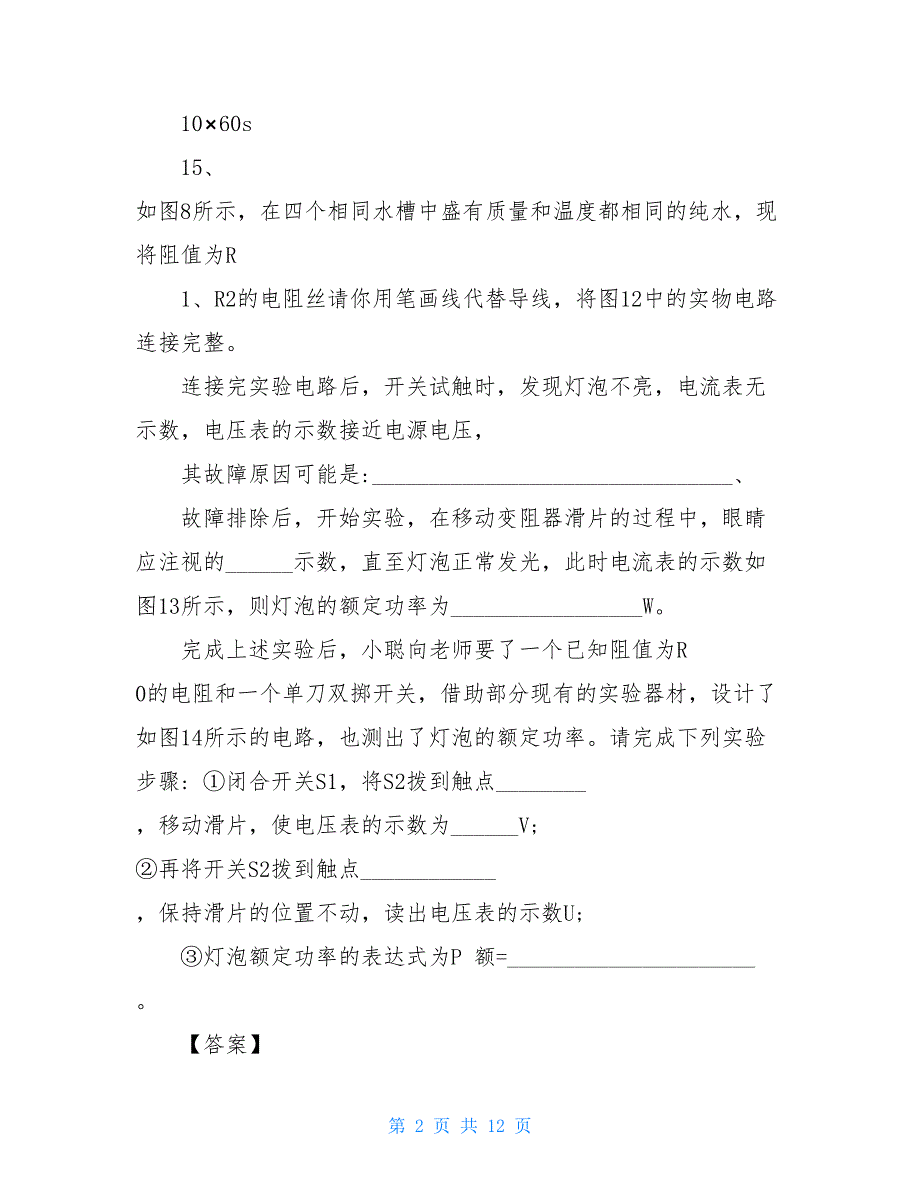 10×60s
15、
如图8所示，在四个相同水槽中盛有质量和温度都相同的纯水，现
将阻值为R
1、R2的电阻丝请你用笔画线代替导线，将图12中的实物电路
连接完整。
连接完实验电路后，开关试触时，发现灯泡不亮，电流表无
示数，电压表的示数接近电源电压，
其故障原因可能是:________________________________、
故障排除后，开始实验，在移动变阻器滑片的过程中，眼睛
应注视的______示数，直至灯泡正常发光，此时电流表的示数如
图13所示，则灯泡的额定功率为_________________W。
完成上述实验后，小聪向老师要了一个已知阻值为R
0的电阻和一个单刀双掷开关，借助部分现有的实验器材，设计了
如图14所示的电路，也测出了灯泡的额定功率。请完成下列实验
步骤: ①闭合开关S1，将S2拨到触点________
，移动滑片，使电压表的示数为______V;
②再将开关S2拨到触点____________
，保持滑片的位置不动，读出电压表的示数U;
③灯泡额定功率的表达式为P 额=______________________
。
【答案】
第 2 页 共 12 页